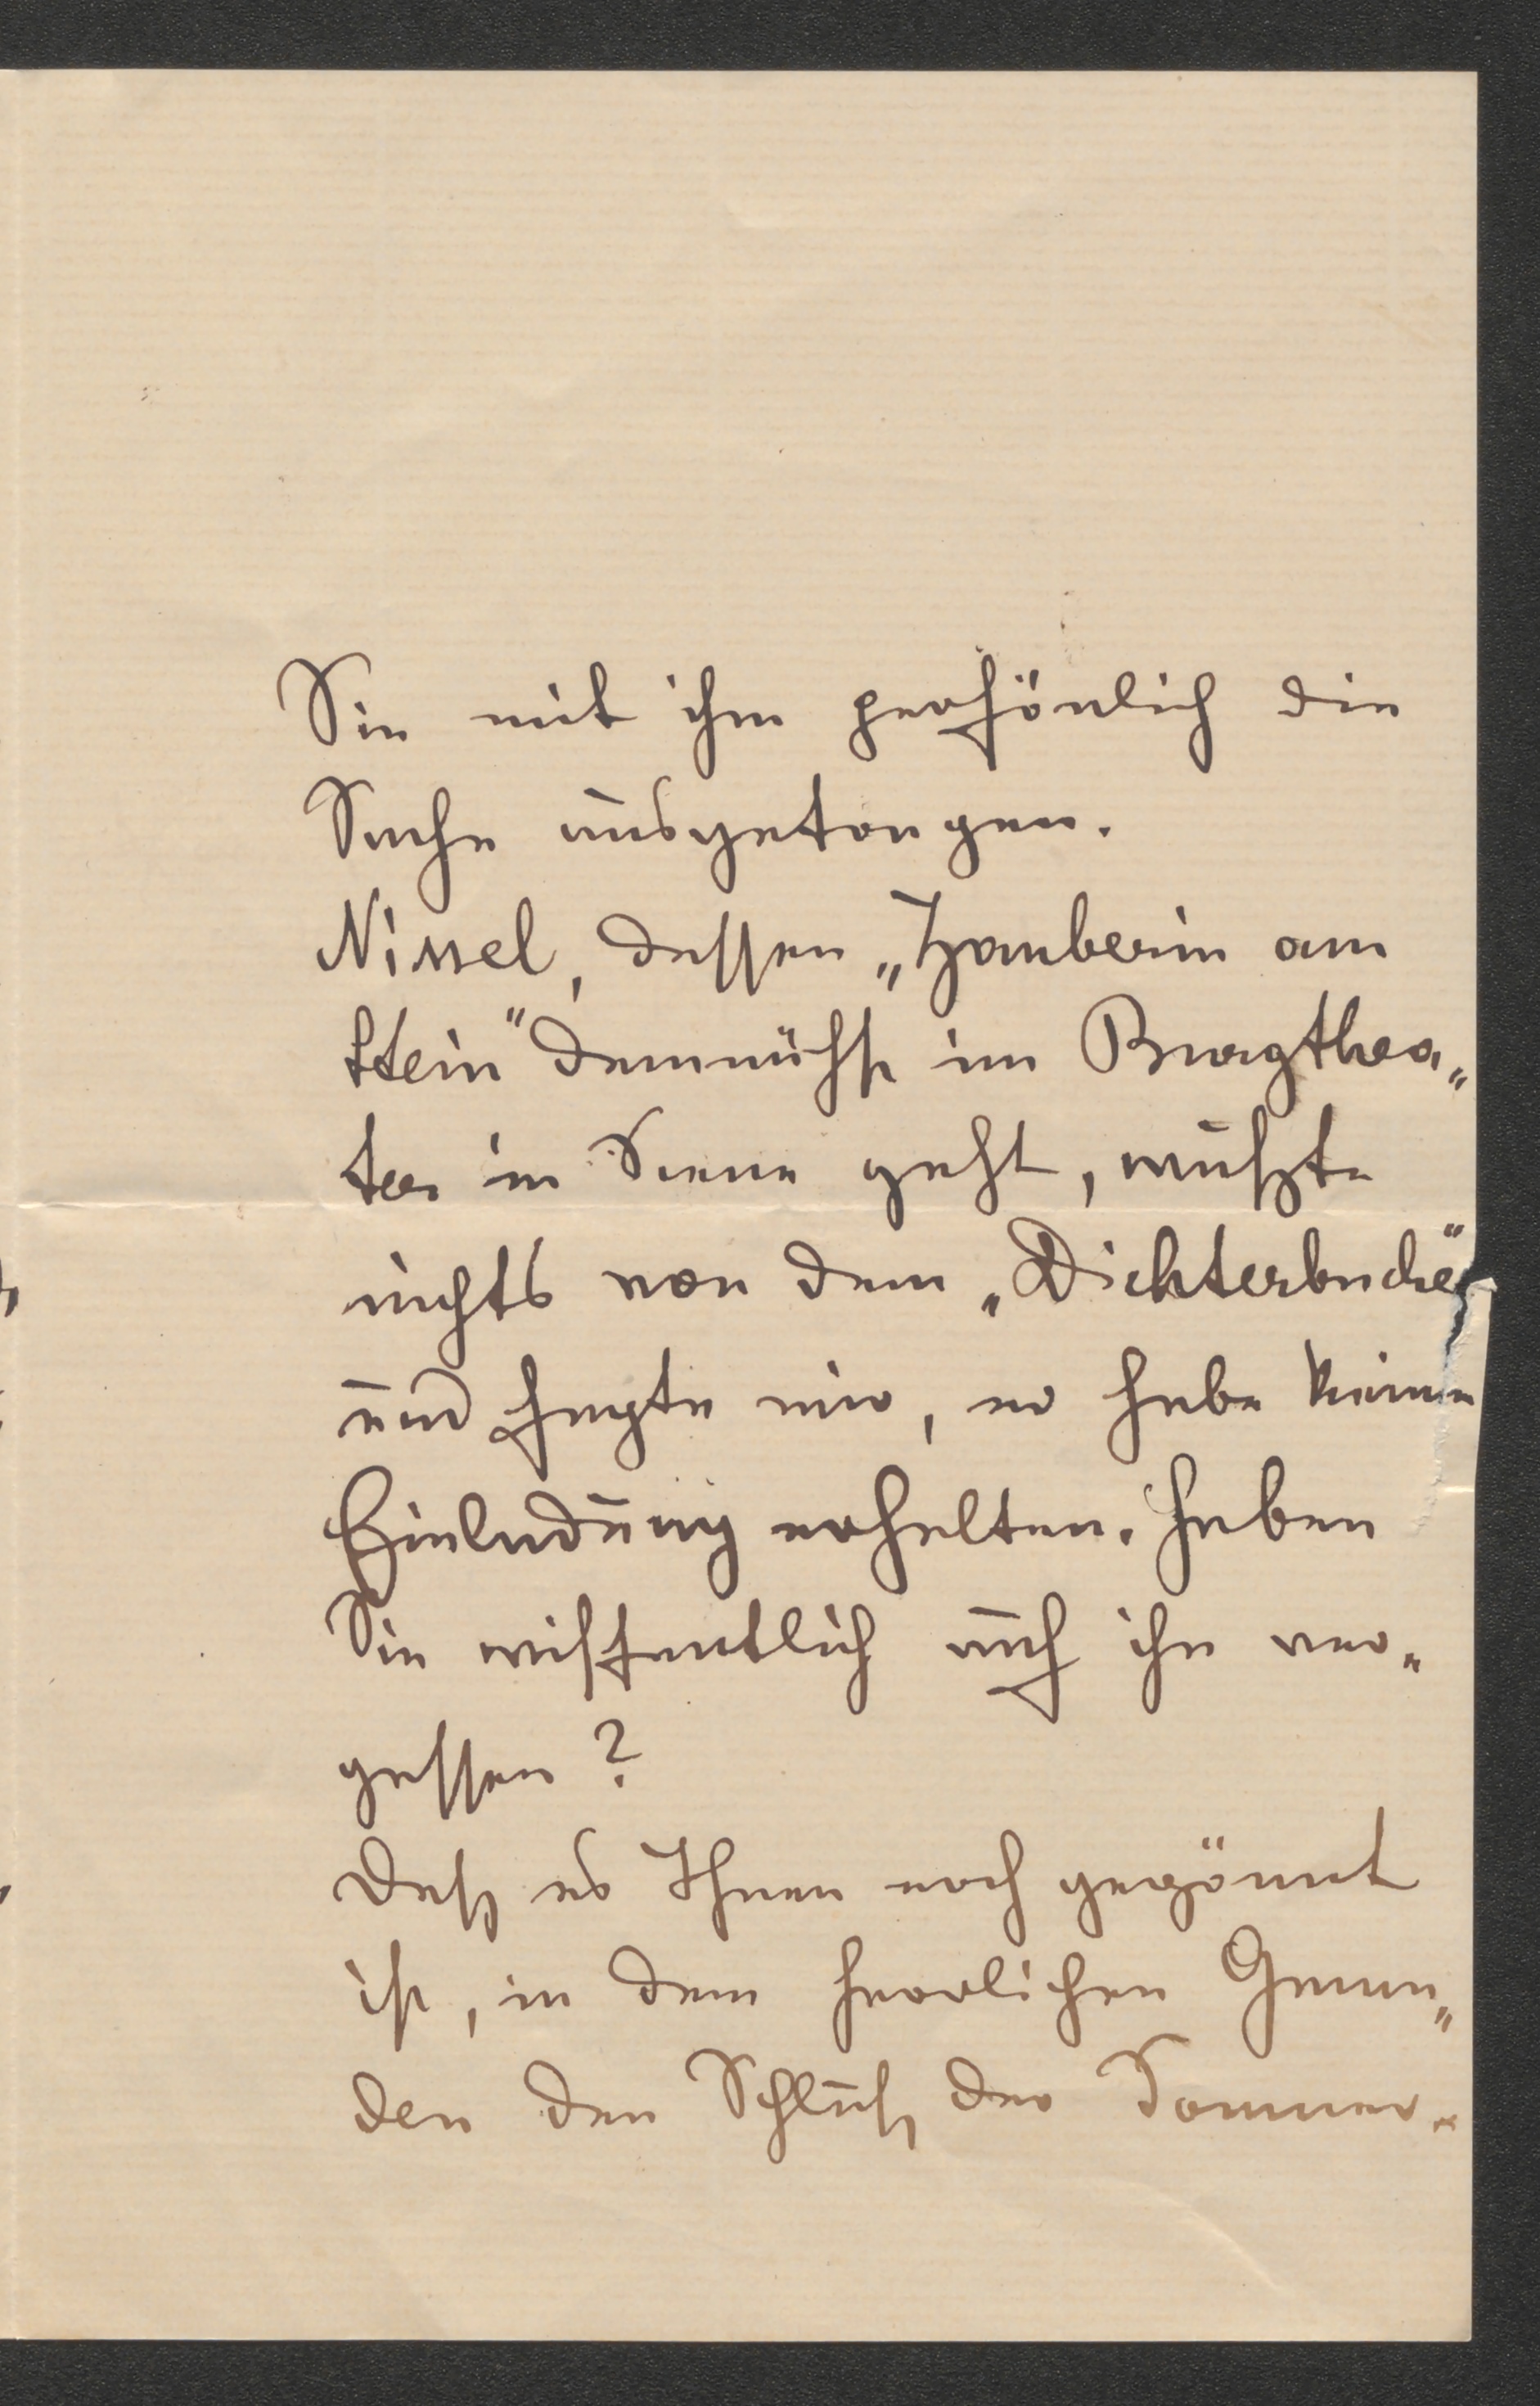 Sie mit ihm persönlich die
Sache ausgetragen.
Nissel, dessen „Zauberin am
Stein" demnächst im Burgthea„
ter in Scene geht, wußte
nichts von dem „Dichterbuche"
und sagte mir, er habe keine
Einladung erhalten. Haben
Sie wissentlich auch ihn ver„
gessen?
Daß es Ihnen noch gegönnt
ist, in dem herrlichen Gmun„
den den Schluß der Sommer„